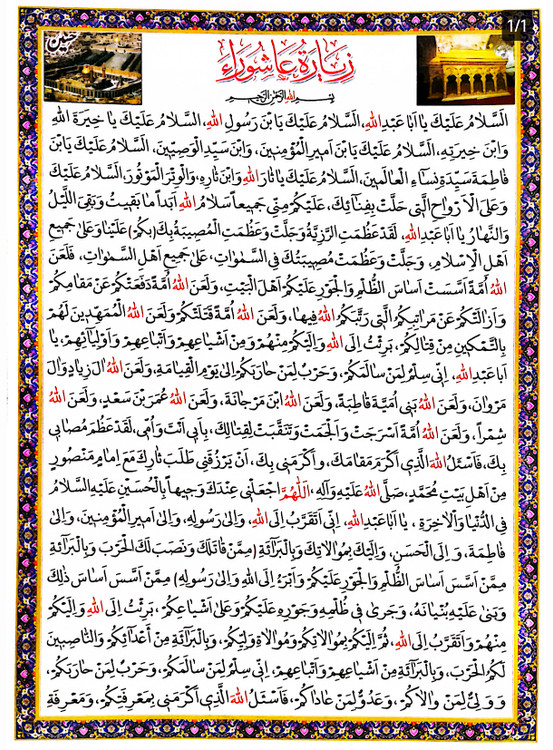 1/1
زيارة عاشوراء
بسم الله الرحمن الرحيم
اَلسَّلامُ عَلَيْكَ يا اَبا عَبْدِ اللهِ، اَلسَّلامُ عَلَيْكَ يَا بْنَ رَسُولِ اللهِ، اَلسَّلامُ عَلَيْكَ يا خِيَرَةَ اللهِ
وَابْنَ خِيَرَتِهِ، اَلسَّلامُ عَلَيْكَ يَا بْنَ اَميرِ الْمُؤْمِنينَ، وَابْنَ سَيِّدِ الْوَصِيّينَ، اَلسَّلامُ عَلَيْكَ يَا بْنَ
فاطِمَةَ سَيِّدَةِ نِساءِ الْعالَمينَ، اَلسَّلامُ عَلَيْكَ يا ثارَ اللهِ وَابْنَ ثارِهِ، وَالْوِتْرَ الْمَوْتُورَ، اَلسَّلامُ عَلَيْكَ
وَعَلَى الْاَرْواحِ الَّتى حَلَّتْ بِفِنائِكَ، عَلَيْكُمْ مِنّى جَميعاً سَلامُ اللهِ اَبَداً ما بَقيتُ وَبَقِىَ اللَّيْلُ
وَالنَّهارُ يا اَبا عَبْدِ اللهِ، لَقَدْ عَظُمَتِ الرَّزِيَّةُ وَجَلَّتْ وَعَظُمَتِ الْمُصيبَةُ بِكَ (بِكُمْ) عَلَيْنا وَعَلى جَميعِ
اَهْلِ الْاِسْلامِ، وَجَلَّتْ وَعَظُمَتْ مُصيبَتُكَ فِى السَّمٰواتِ، عَلى جَميعِ اَهْلِ السَّمٰواتِ، فَلَعَنَ
اللهُ اُمَّةً اَسَّسَتْ اَساسَ الظُّلْمِ وَالْجَوْرِ عَلَيْكُمْ اَهْلَ الْبَيْتِ، وَلَعَنَ اللهُ اُمَّةً دَفَعَتْكُمْ عَنْ مَقامِكُمْ
وَاَزالَتْكُمْ عَنْ مَراتِبِكُمُ الَّتى رَتَّبَكُمُ اللهُ فيها، وَلَعَنَ اللهُ اُمَّةً قَتَلَتْكُمْ وَلَعَنَ اللهُ الْمُمَهِّدينَ لَهُمْ
بِالتَّمْكينِ مِنْ قِتالِكُمْ، بَرِئْتُ اِلَى اللهِ وَاِلَيْكُمْ مِنْهُمْ وَمِنْ اَشْياعِهِمْ وَاَتْباعِهِمْ وَاَوْلِيائِهِمْ، يا
اَبا عَبْدِ اللهِ، اِنّى سِلْمٌ لِمَنْ سالَمَكُمْ، وَحَرْبٌ لِمَنْ حارَبَكُمْ اِلى يَوْمِ الْقِيامَةِ، وَلَعَنَ اللهُ آلَ زِيادٍ وَآلَ
مَرْوانَ، وَلَعَنَ اللهُ بَنى اُمَيَّةَ قاطِبَةً، وَلَعَنَ اللهُ ابْنَ مَرْجانَةَ، وَلَعَنَ اللهُ عُمَرَ بْنَ سَعْدٍ، وَلَعَنَ اللهُ
شِمْراً، وَلَعَنَ اللهُ اُمَّةً اَسْرَجَتْ وَاَلْجَمَتْ وَتَنَقَّبَتْ لِقِتالِكَ، بِاَبى اَنْتَ وَاُمّى، لَقَدْ عَظُمَ مُصابى
بِكَ، فَاَسْئَلُ اللهَ الَّذى اَكْرَمَ مَقامَكَ، وَاَكْرَمَنى بِكَ، اَنْ يَرْزُقَنى طَلَبَ ثارِكَ مَعَ اِمامٍ مَنْصُورٍ
مِنْ اَهْلِ بَيْتِ مُحَمَّدٍ، صَلَّى اللهُ عَلَيْهِ وَآلِهِ، اَللّٰهُمَّ اجْعَلْنى عِنْدَكَ وَجيهاً بِالْحُسَيْنِ عَلَيْهِ السَّلامُ
فِى الدُّنْيا وَالْاٰخِرَةِ، يا اَبا عَبْدِ اللهِ، اِنّى اَتَقَرَّبُ اِلَى اللهِ، وَاِلى رَسُولِهِ، وَاِلى اَميرِ الْمُؤْمِنينَ، وَاِلى
فاطِمَةَ، وَاِلَى الْحَسَنِ، وَاِلَيْكَ بِمُوالاتِكَ وَبِالْبَرائَةِ (مِمَّنْ قاتَلَكَ وَنَصَبَ لَكَ الْحَرْبَ، وَبِالْبَرائَةِ
مِمَّنْ اَسَّسَ اَساسَ الظُّلْمِ وَالْجَوْرِ عَلَيْكُمْ وَاَبْرَءُ اِلَى اللهِ وَاِلى رَسُولِهِ) مِمَّنْ اَسَّسَ اَساسَ ذٰلِكَ
وَبَنى عَلَيْهِ بُنْيانَهُ، وَجَرىٰ فى ظُلْمِهِ وَجَوْرِهِ عَلَيْكُمْ وَعَلى اَشْياعِكُمْ، بَرِئْتُ اِلَى اللهِ وَاِلَيْكُمْ
مِنْهُمْ وَاَتَقَرَّبُ اِلَى اللهِ، ثُمَّ اِلَيْكُمْ بِمُوالاتِكُمْ وَمُوالاةِ وَلِيِّكُمْ، وَبِالْبَرائَةِ مِنْ اَعْدائِكُمْ وَالنّاصِبينَ
لَكُمُ الْحَرْبَ، وَبِالْبَرائَةِ مِنْ اَشْياعِهِمْ وَاَتْباعِهِمْ، اِنّى سِلْمٌ لِمَنْ سالَمَكُمْ، وَحَرْبٌ لِمَنْ حارَبَكُمْ،
وَوَلِىٌّ لِمَنْ والاكُمْ، وَعَدُوٌّ لِمَنْ عاداكُمْ، فَاَسْئَلُ اللهَ الَّذى اَكْرَمَنى بِمَعْرِفَتِكُمْ، وَمَعْرِفَةِ